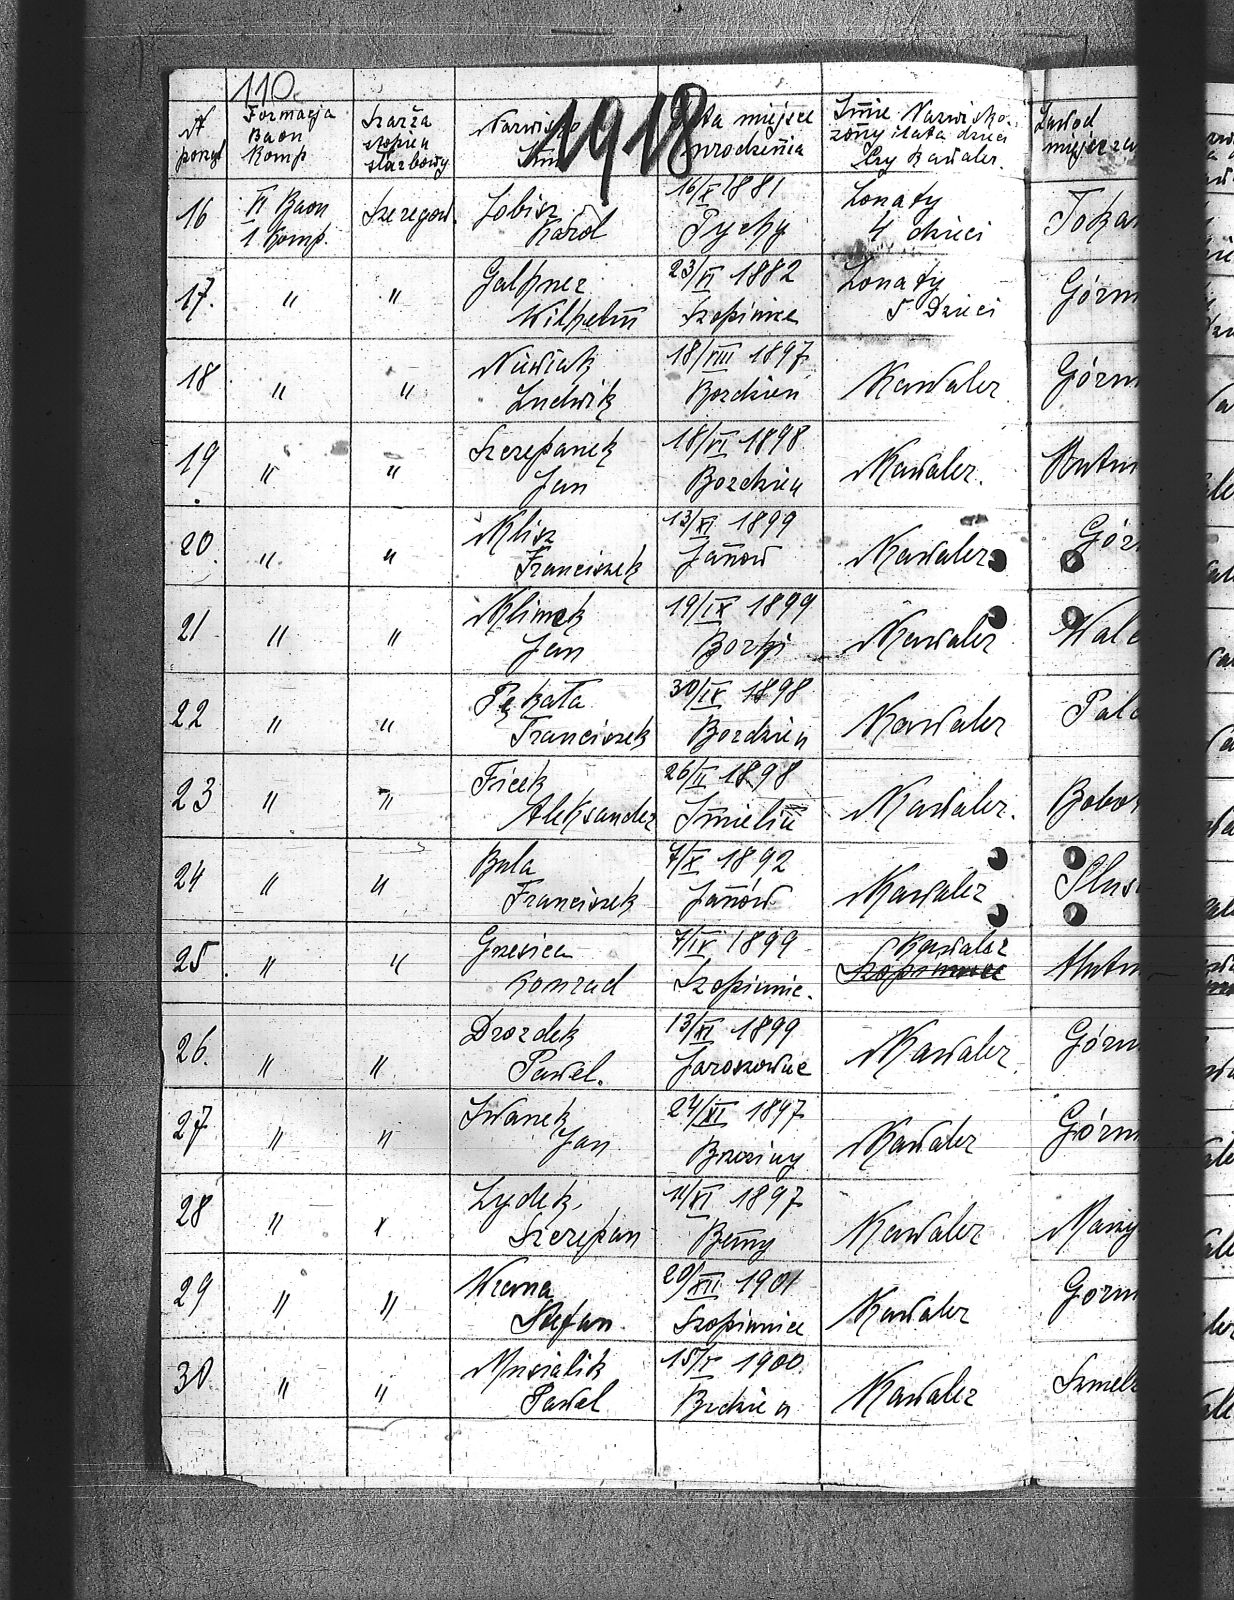 110.
1918
Nr pozycj
Formacja Baon Komp
Szarża stopień służbowy
Nazwisko Imię
Data miejsce urodzenia
Imie Nazwisko żony i lata dzieci Czy Kawaler.
Zawod
16 II Baon 1 Komp. Szeregow. Karol 16/X 1881 Tychy Zonaty 4 dzieci Tokar
17. " " Wilhelm 23/VI 1882 Szopinice Zonaty 5 Dzieci Górn
18 " " Ludwik 18/VIII 1897 Bozdzien Kawaler Górn
19 " " Szczepanek Jan 18/VI 1898 Bozdzien Kawaler. Hutni
20. " " Klisz Franciszek 13/XI 1899 Janow Kawaler Górn
21 " " Klimek Jan 19/IX 1899 Borki Kawaler Walc
22 " " Pękata Franciszek 30/IX 1898 Bozdzien Kawaler Pala
23 " " Ficek Aleksander 26/II 1898 Imielin Kawaler. Robot
24 " " Bula Franciszek 7/X 1892 Janów Kawaler Slus
25 " " Grzesica Konrad 7/IX 1899 Szopinnic. Kawaler Szopinnice Hutn
26. " " Drozdek Pawel. 13/XI 1899 Jaroszowice Kawaler Górn
27 " " Iwanek Jan 24/XI 1897 Brzeziny Kawaler Górn
28 " " Zydek. Szczepan 11/VI 1897 Kawaler Maszy
29 " " Wrona Stefan. 20/XII 1901 Szopinnice Kawaler Gorn
30 " " Musialik Pawel 15/V 1900 Kawaler Szmelc